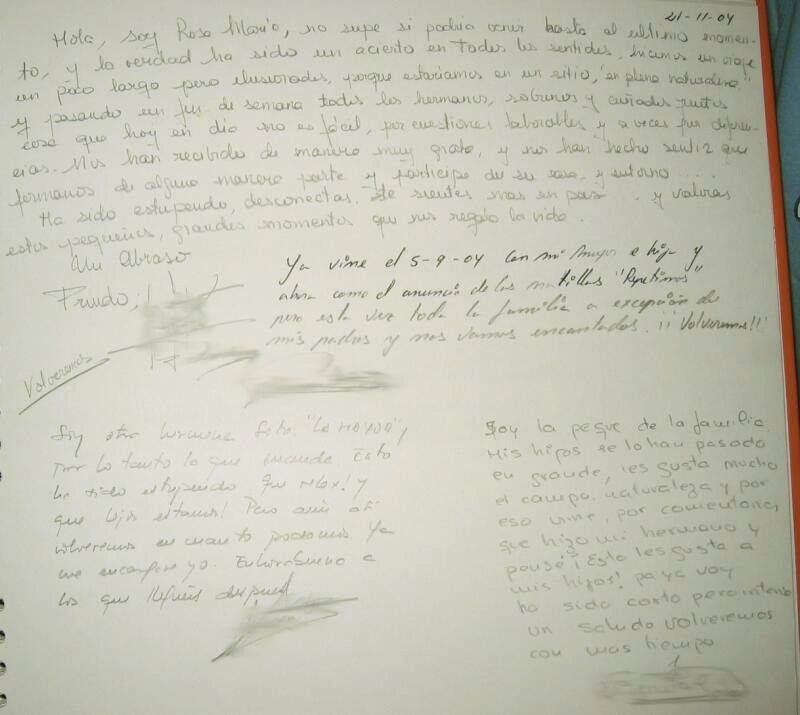 21-11-04
Hola, soy Rosa María, no supe si podría venir hasta el ultimo momen-
to, y la verdad ha sido un acierto en todos los sentidos, hicimos un viaje
un poco largo pero ilusionados, porque estaríamos en un sitio, "en plena naturaleza"
y pasando un fin de semana todos los hermanos, sobrinos y cuñados juntos
cosa que hoy en día no es fácil, por cuestiones laborables y a veces por diferen-
cias. Nos han recibido de manera muy grata, y nos han hecho sentir que
formamos de alguna manera parte y participe de su casa y entorno ....
Ha sido estupendo, desconectas. te sientes mas en paz .. y valoras
estos pequeños, grandes momentos que nos regala la vida.
Un Abraso
Volveremos
Ya vine el 5-9-04 con mi mujer e hija y
ahora como el anuncio de las natillas "Repetimos"
pero esta vez toda la familia a excepción de
mis padres y nos vamos encantados. ¡¡Volveremos!!
Soy otra hermana "La MAYOR" y
por lo tanto lo que
ha sido estupendo que relax! y
que lejos estamos! Pero aún así
volveremos en cuanto podamos ya
me encargare yo. Enhorabuena a
los que
Soy la peque de la familia.
Mis hijos se lo han pasado
en grande, les gusta mucho
el campo, naturaleza y por
eso vine, por comentarios
que hizo mi hermano y
pensé ¡Esto les gusta a
mis hijos! pa ya voy
ha sido corto pero intenso
un saludo volveremos
con mas tiempo